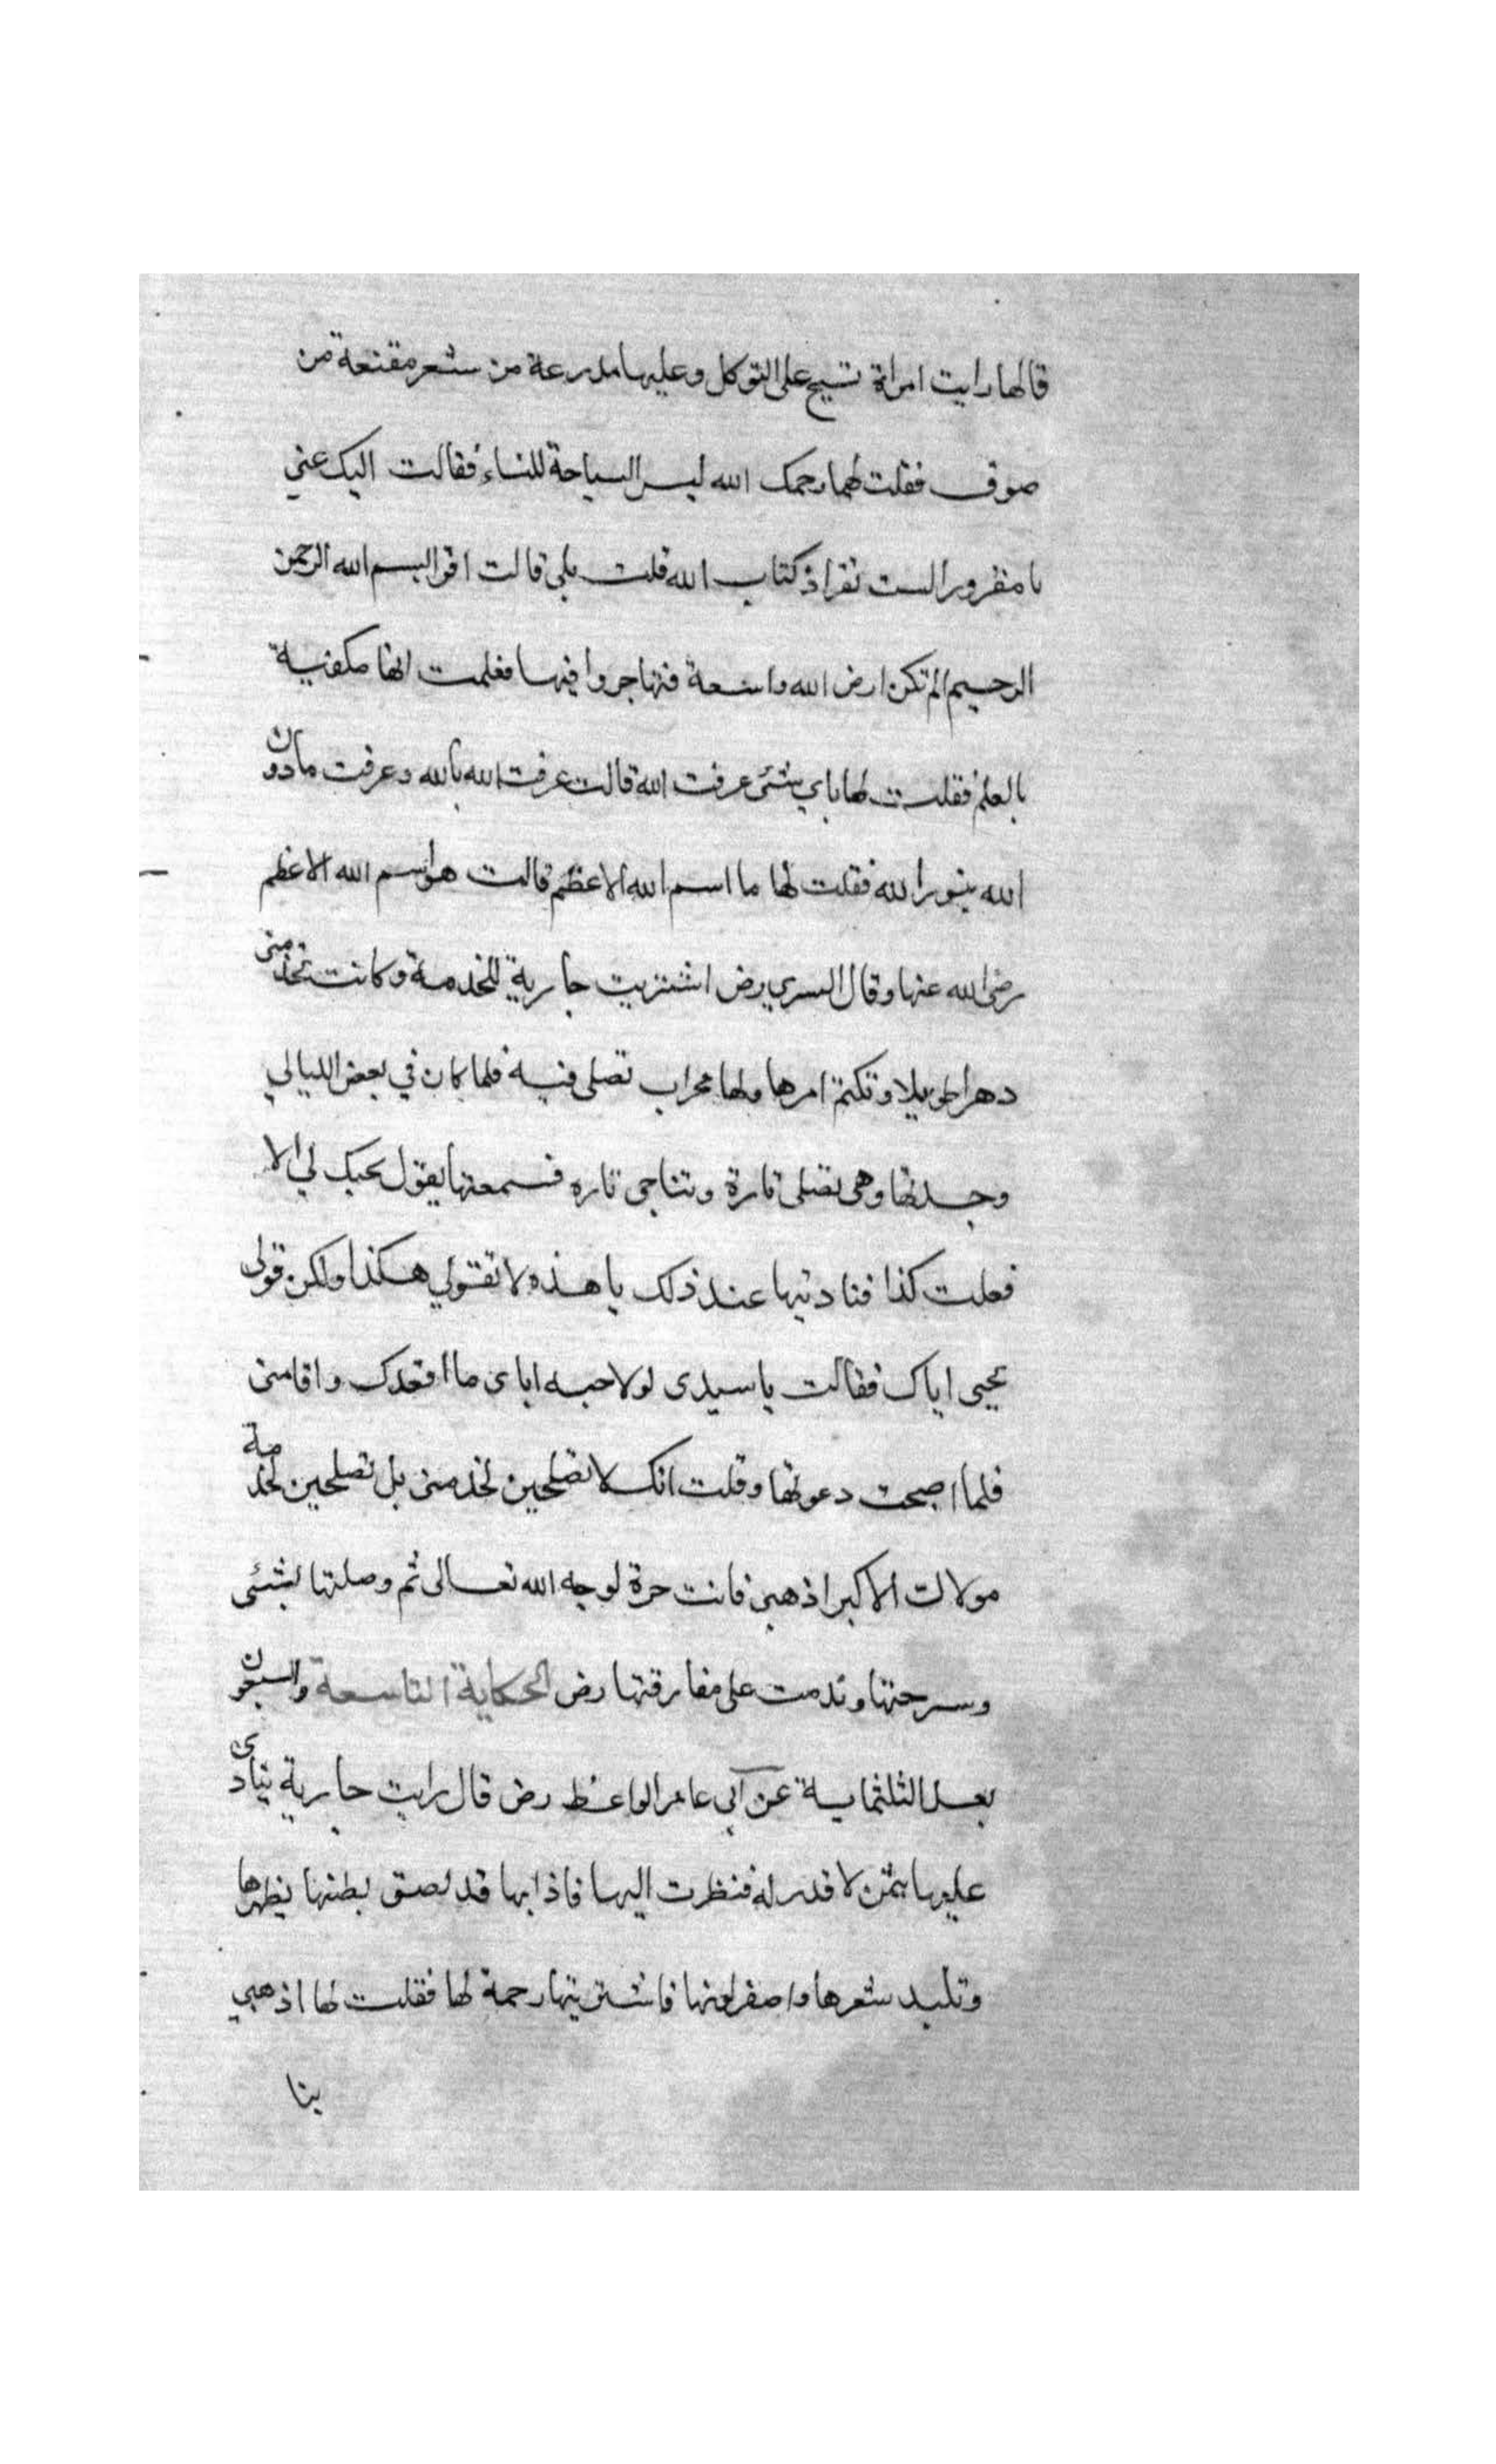 قالها رايت امراة تسيح على التوكل وعليها مدرعة من شعر مقنعة من
صوف فقلت لها رحمك الله ليس السياحة للنساء فقالت اليك عني
يا مغرور الست تقرا كتاب الله قلت بلى قالت اقرا بسم الله الرحمن
الرحيم الم تكن ارض الله واسعة فتهاجروا فيها فعلمت انها مكفية
بالعلم فقلت لها باي شئ عرفت الله قالت عرفت الله بالله وعرفت مادون
الله بنور الله فقلت لها ما اسم الله الاعظم قالت هو اسم الله الاعظم
رضى الله عنها وقال السري رض اشتريت جارية للخدمة وكانت تخدمنى
دهرا طويلا وتكتم امرها ولها محراب تصلى فيه فلما كان في بعض الليالي
وجدتها وهى تصلى تارة وتناجى تاره فسمعتها يقول بحبك لي الا
فعلت كذا فناديتها عند ذلك يا هذه لا تقولي هكذا ولكن قولى
بحبى اياك فقالت يا سيدى لولا حبه اياى ما اقعدك واقامنى
فلما اصبحت دعوتها وقلت انك لا تصلحين لخدمتى بل تصلحين لخدمة
مولاك الاكبر اذهبى فانت حرة لوجه الله تعالى ثم وصلتها بشئى
وسرحتها وندمت على مفارقتها رض الحكاية التاسعة والسبعون
بعد الثلثماية عن ابي عامر الواعظ رض قال رايت جارية ينادى
عليها بثمن لا قدر له فنظرت اليها فاذا بها قد لصق بطنها بظهرها
وتلبد شعرها واصفر لونها فاشتريتها رحمة لها فقلت لها اذهبي
بنا